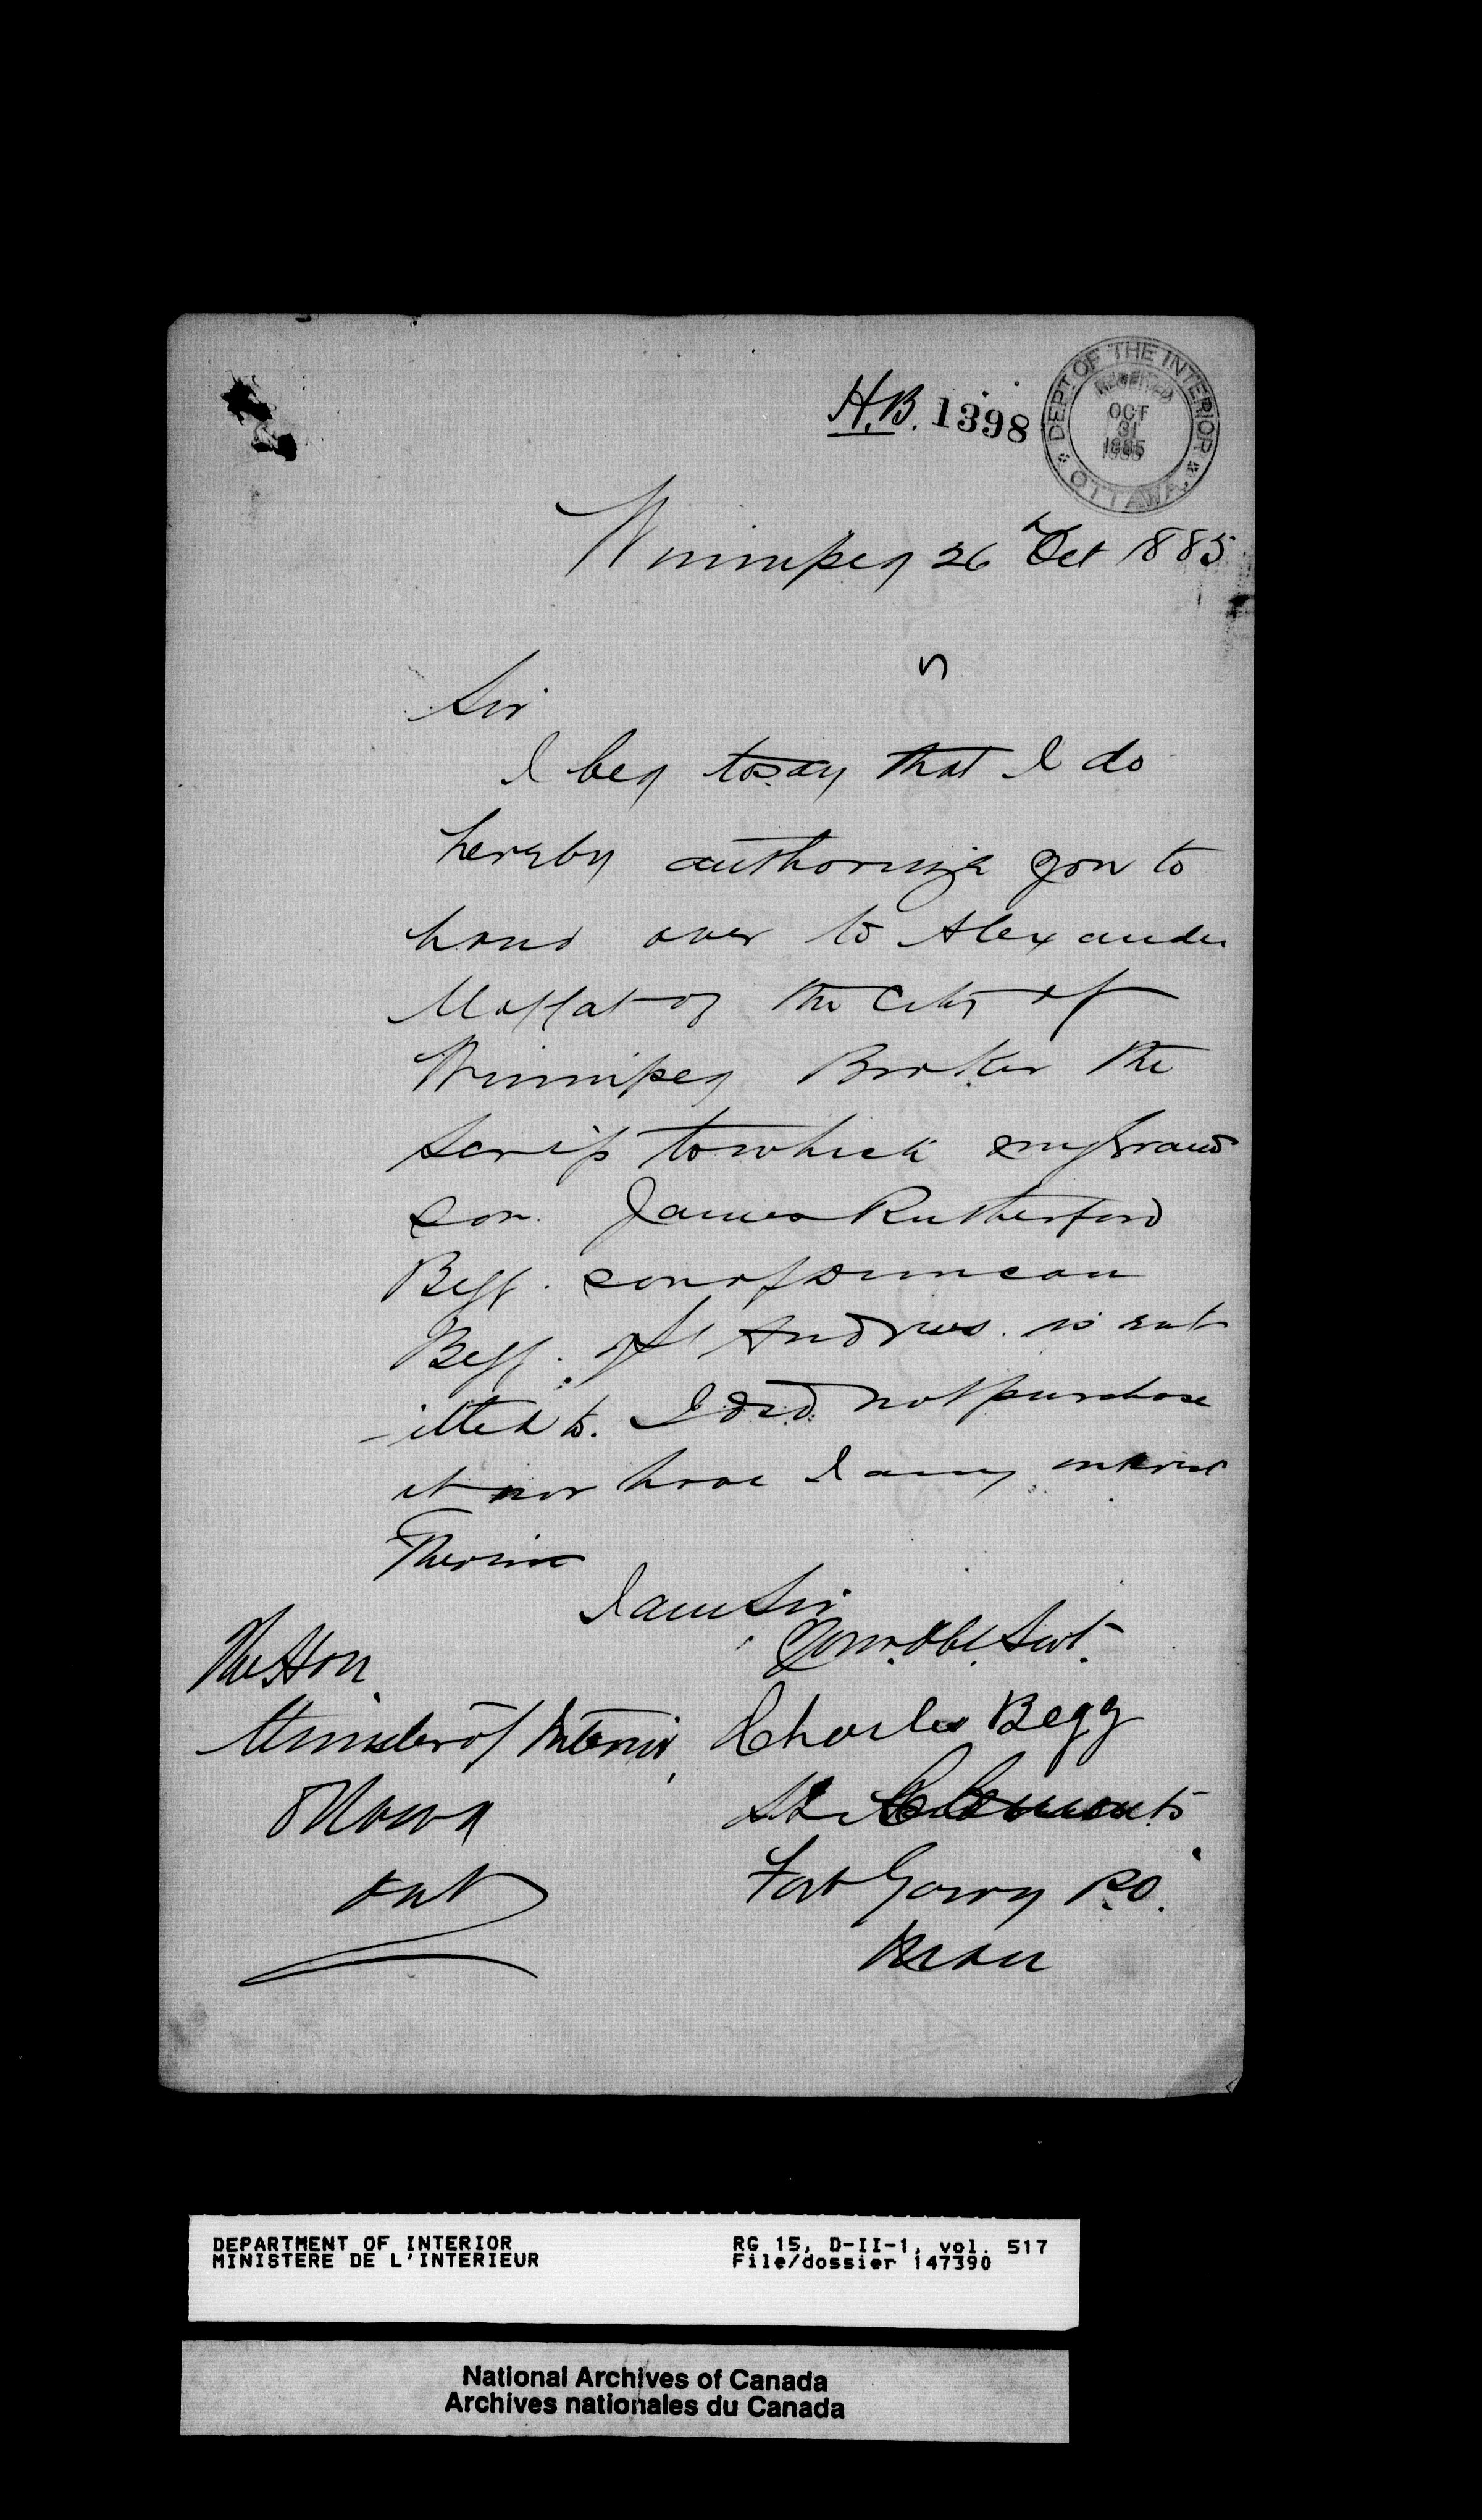 H.B. 1398
DEPT. OF THE INTERIOR
RECEIVED
OCT
31
1885
OTTAWA.
Winnipeg 26th Oct 1885
Sir
I beg to say that I do
hereby authorize you to
hand over to Alexander
Moffat of the City of
Winnipeg Broker the
Scrip to which my Grand
son. James Rutherford
Begg. son of Duncan
Begg. of St Andrews. is ent
-itled to. I did not purchase
it nor have I any interest
Therein
I am Sir
Your. Obt. Servt.
The Hon.
Minister of Interior, Charles Begg
Ottawa St Clements
Ont Fort Garry P.O.
Man
DEPARTMENT OF INTERIOR RG 15, D-II-1, vol. 517
MINISTERE DE L'INTERIEUR File/dossier 147390
National Archives of Canada
Archives nationales du Canada